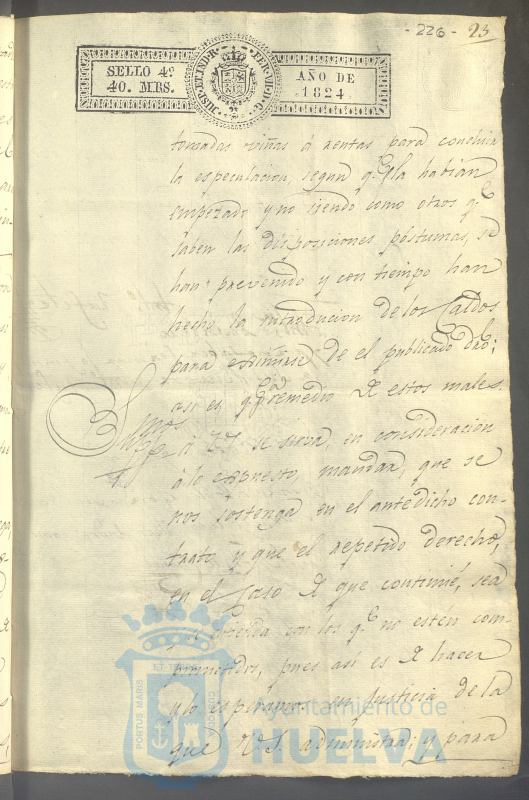 - 226 - 23
SELLO 4º
40. MRS.
HISP. ET IND. R. FER. VII. D. G.
AÑO DE
1824.
tomadas viñas á rentas para concluir
la especulacion, segun q.e la habian
empezado y no siendo como otros q.e
saben las disposiciones póstumas, se
han prevenido y con tiempo han
hecho la introducion de los Caldos
para eximirse de el publicado dro;
así es q.e p.a remedio de estos males.
Sup.mos
á VS. se sirva, en consideración
á lo expuesto, mandar, que se
nos sostenga en el antedicho con-
trato y que el repetido derecho,
en el caso de que continúe, sea
y se entienda con los q.e no estén com-
prometidos, pues así es de hacer
y lo esperamos en Justicia de la
que V.S. administra; y para
PORTUS MARIS
ET TERRÆ CUSTODIA
Ayuntamiento de
HUELVA